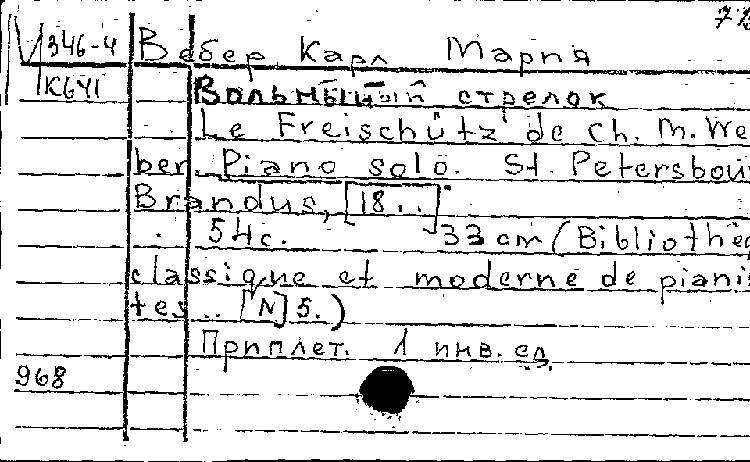 73
V346-4 Вебер Карл Мария
К641 Вольный стрелок
Le Freischütz de Ch. M. We
ber. Piano solo. St. Petersbou
Brandus, [18..]
54с. 33 cm (Bibliothe
classique et moderne de piani
tes.. [N] 5.)
Приплет. 1 инв. ед.
968